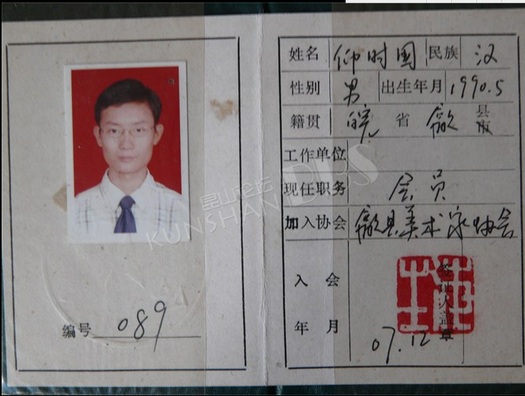 编号 089
姓名 仰时国 民族 汉
性别 男 出生年月 1990.5
籍贯 皖 省 歙 县市
工作单位
现任职务 会员
加入协会 歙县美术家协会
入会年月 07.12
昆山论坛
KUNSHAN BBS